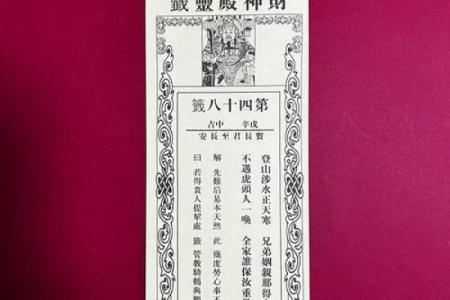 財神殿靈籤
第四十八籤
戊辛 中吉
竇長君至長安
登山涉水正天寒 兄弟姻親那得
不遇虎頭人一喚 全家誰保汝重
解 先難后易本天然 此 幾度勞心事不
曰 若得貴人提挈處 籤 管教騎鶴與